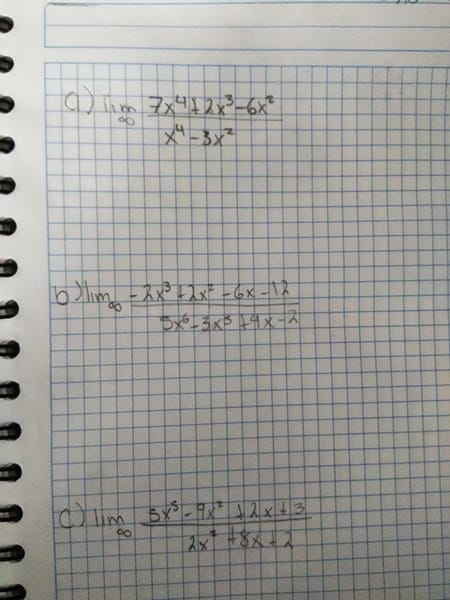 a) lim ∞ 7x⁴+2x³-6x² / x⁴-3x²
b) lim ∞ -2x³+2x²-6x-12 / 5x⁶-3x³+4x-2
c) lim ∞ 5x⁵-9x²+2x+3 / 2x²+8x-2